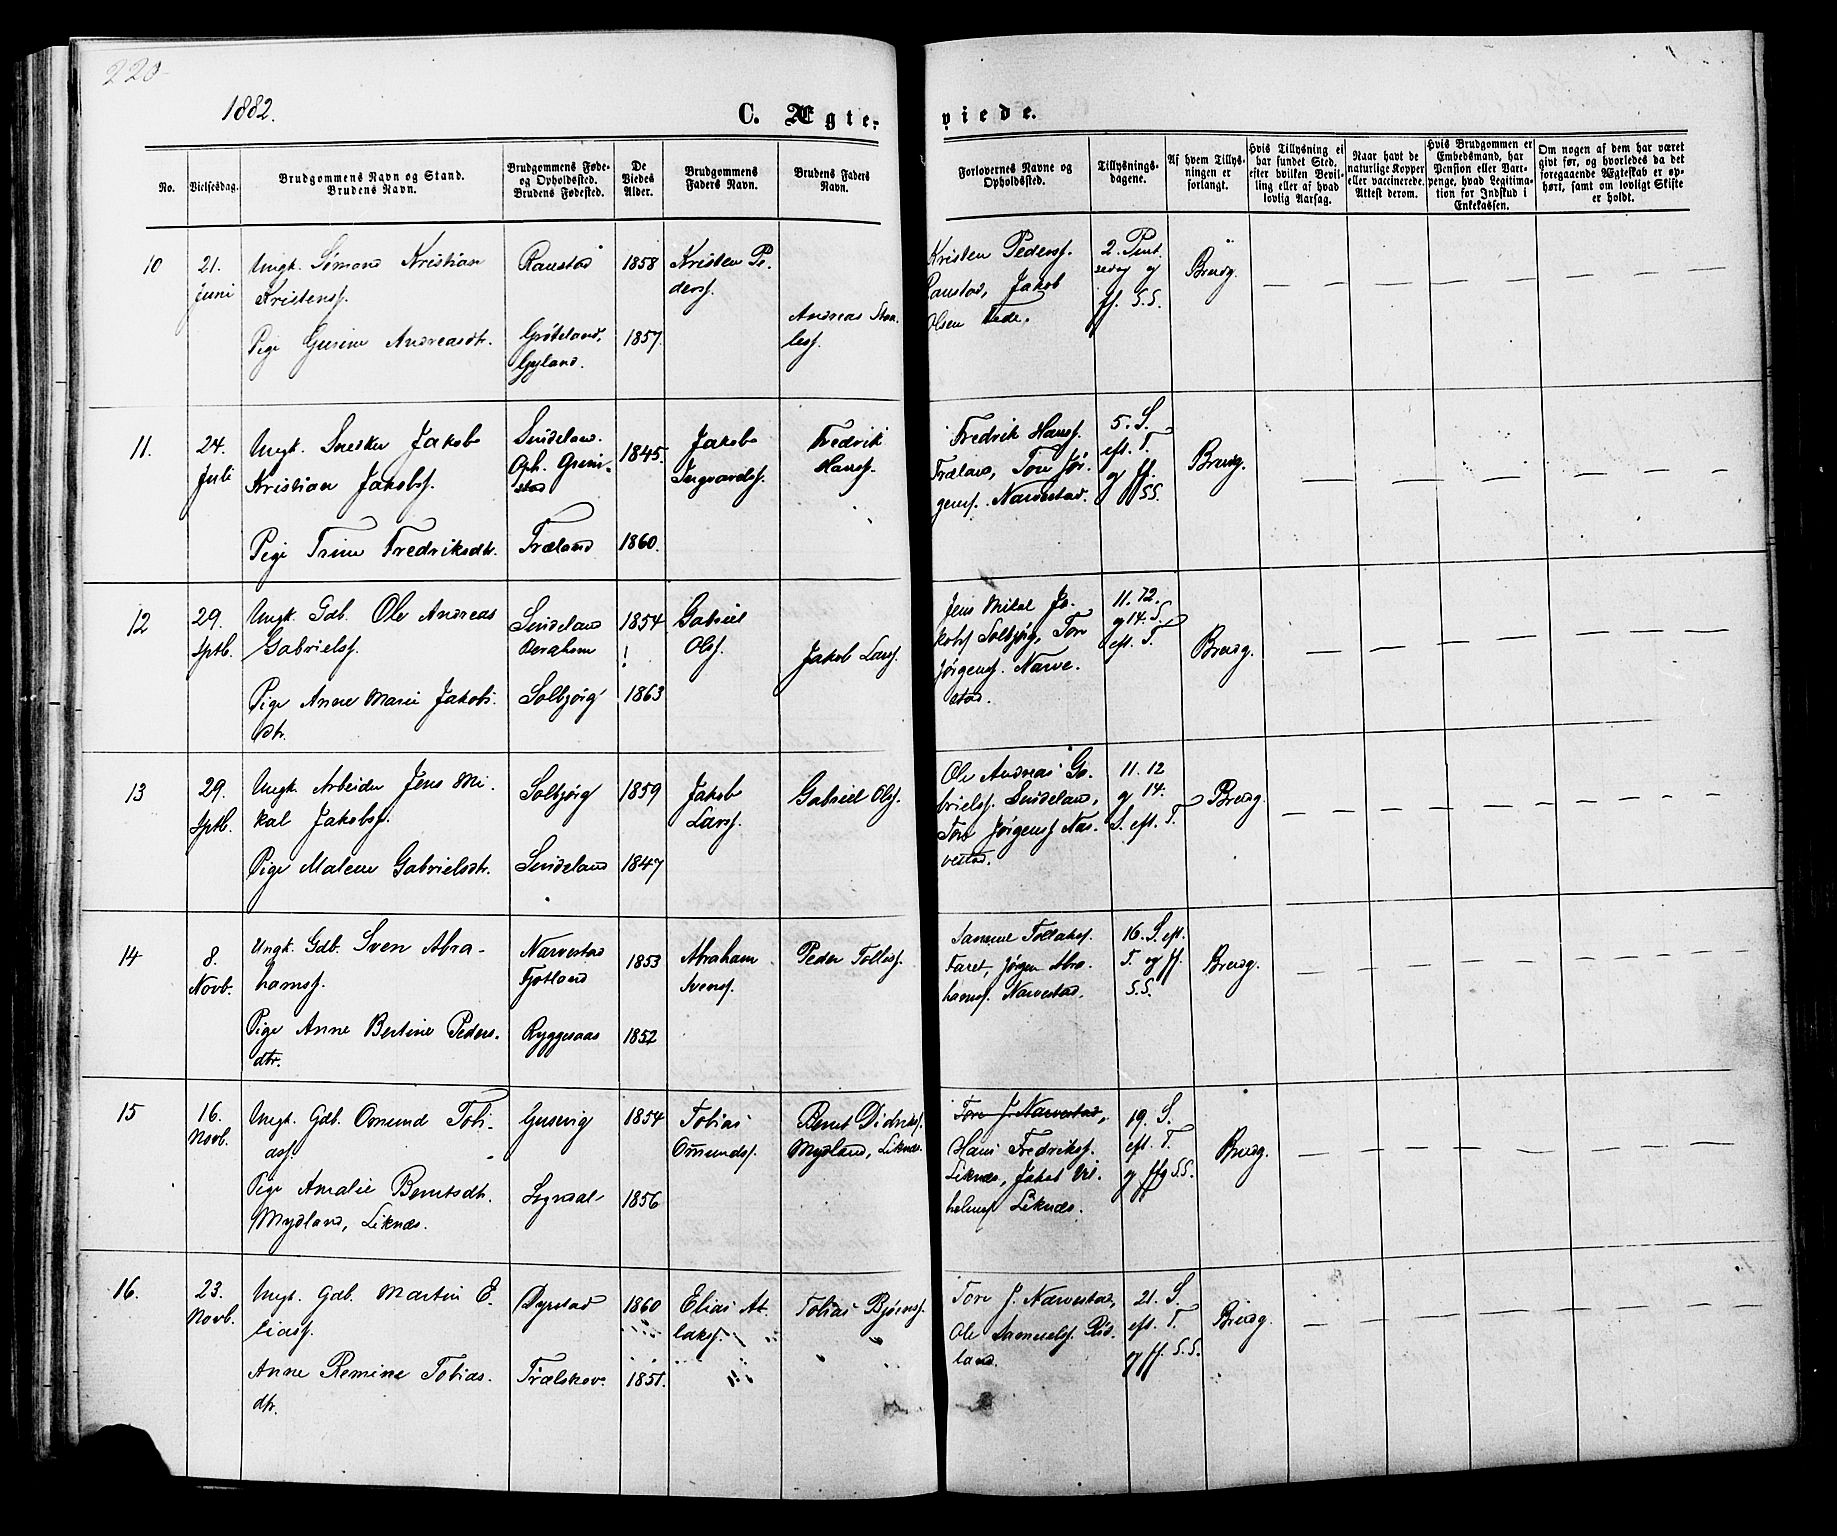 220
1882.
C. Ægte-
viede.
No.
Vielsesdag.
Brudgommens Navn og Stand.
Brudens Navn.
Brudgommens Føde-
og Opholdssted.
Brudens Fødested.
De
Viedes
Alder.
Brudgommens
Faders Navn.
Brudens Faders
Navn.
Forlovernes Navne og
Opholdssted.
Tillysnings-
dagene.
Af hvem Tillys-
ningen er
forlangt.
Hvis Tillysning ei
har fundet Sted,
efter hvilken Bevil-
ling eller af hvad
lovlig Aarsag.
Naar havt de
naturlige Kopper
eller vaccinerede.
Attest derom.
Hvis Brudgommen er
Embedsmand, har
Pension eller Vart-
penge, hvad Legitima-
tion for Indskud i
Enkekassen.
Om nogen af dem har været
givt før, og hvorledes da det
foregaaende Ægteskab er op-
hørt, samt om lovligt Skifte
er holdt.
10
21.
Juni
Ungk. Simond Kristian
Kristensf.
Pige Gurine Andreasdtr.
Raustad
Grøteland,
Gyland.
1858
1857.
Kristen Pe-
dersf.
Andreas Staa-
lesf.
Kristen Pedersf.
Raustad, Jakob
Olsen Tede.
2. Pint-
sedag og
ff. S.S.
Brudg.
11.
24.
Juli
Ungk. Snedker Jakob
Kristian Jakobsf.
Pige Trine Fredriksdtr.
Sindeland.
Oph. Grim-
stad
Træland
1845.
1860.
Jakob
Ingvardsf.
Fredrik
Hansf.
Fredrik Hansf.
Træland, Tore Jør-
gensf. Narvestad.
5. S.
eft. T.
og ff.
SS.
Brudg.
12
29.
Sptb.
Ungk. Gdb. Ole Andreas
Gabrielsf.
Pige Anne Marie Jakobs-
dtr.
Sindeland
Solbjørg
1854
!
1863
Gabriel
Olsf.
Jakob Larsf.
Jens Mikal Ja-
kobsf Solbjørg, Tore
Jørgensf. Narve-
stad.
11. 12.
og 14. S.
eft. T.
Brudg.
13
29.
Sptb.
Ungk. Arbeider Jens Mi-
kal Jakobsf.
Pige Malene Gabrielsdtr.
Solbjørg
Sindeland
1859
1847
Jakob
Larsf.
Gabriel Olsf.
Ole Andreas Ga-
brielsf. Sindeland,
Tore Jørgensf Nar-
vestad.
11. 12
og 14.
S. eft. T.
Brudg.
14
8.
Novb.
Ungk. Gdb. Sven Abra-
hamsf.
Pige Anne Bertine Peders-
dtr.
Narvestad
Fjotland
Ryggesaas
1853
1852
Abraham
Svensf.
Peder Tollisf.
Samuel Tollaksf.
Faret, Jørgen Abra-
hamsf. Narvestad.
16. S. eft.
T. og ff.
S.S.
Brudg.
15
16.
Novb.
Ungk. Gdb. Omund Tobi-
asf.
Pige Amalie Berntsdtr.
Mydland, Liknæs.
Gusevig
Sogndal
1854
1856
Tobias
Omundsf.
Bernt Didriksf.
Mydland, Liknæs.
Tore J. Narvestad,
Hans Fredriksf.
Liknæs, Jakob Vil-
helmsf Liknæs.
19. S.
eft. T.
og ffg S.S.
Brudg.
16.
23.
Novb.
Ungk. Gdb. Martin E-
liasf.
Anne Remine Tobias-
dtr.
Dyrstad
Trælskov.
1860
1851.
Elias At-
laksf.
Tobias Bjørnsf.
Tore J. Narvestad,
Ole Samuelsf. Rød-
land.
21. S.
eft. T.
og ff. S.S.
Brudg.